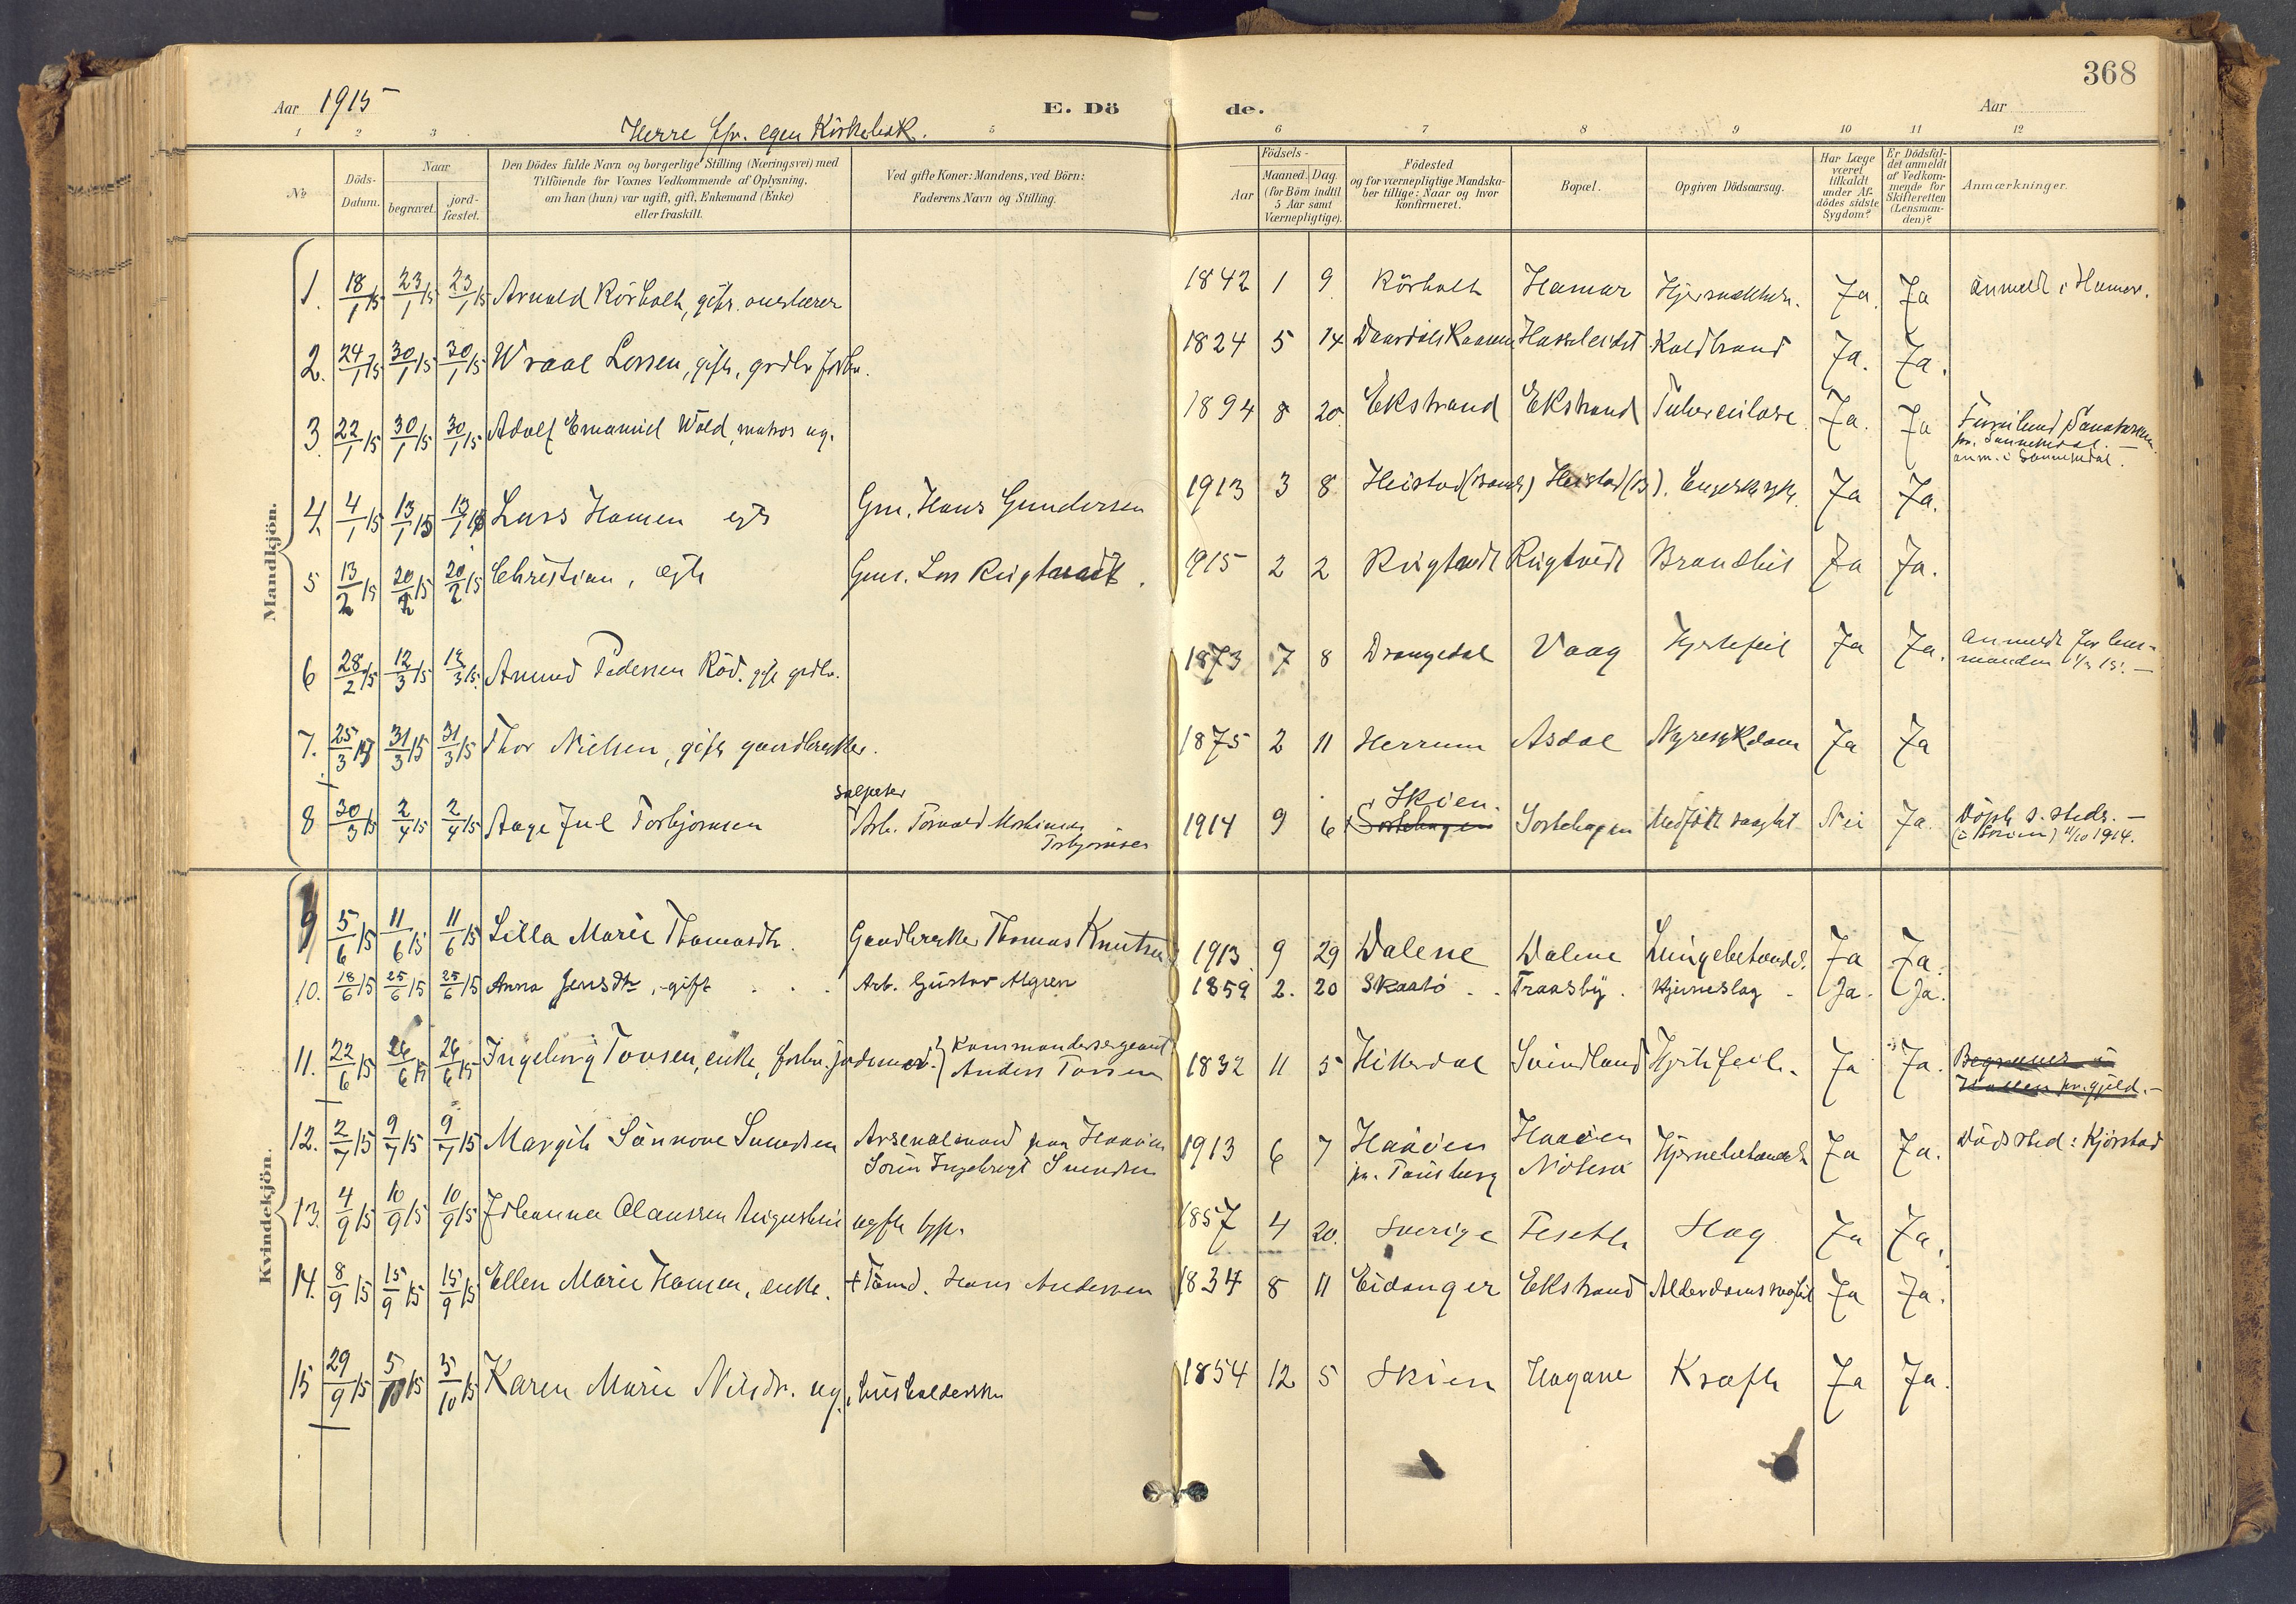 368
Aar 1915 E. Dö de. Aar
Herre egen Kirkebok.
1 2 3 5 6 7 8 9 10 11 12
No. Döds-Datum. Naar begravet. jord-fæstet. Den Dödes fulde Navn og borgerlige Stilling (Næringsvei) med Tilföiende for Voxnes Vedkommende af Oplysning, om han (hun) var ugift, gift, Enkemand (Enke) eller fraskilt. Ved gifte Koner: Mandens, ved Börn: Faderens Navn og Stilling. Födsels- Aar Maaned. Dag. (for Börn indtil 5 Aar samt Værnepligtige). Födested og for værnepligtige Mandskaber tillige: Naar og hvor konfirmeret. Bopæl. Opgiven Dödsaarsag. Har Læge været tilkaldt under Afdödes sidste Sygdom? Er Dödsfaldet anmeldt af Vedkommende for Skifteretten (Lensmanden)? Anmærkninger.
Mandkjön.
1. 18/1 15 23/1 15 23/1 15 Arnold Rörholt, gift. 1842 1 9 Rörholt Hamar Ja. Ja anmeldt i Hamar.
2. 24/1 15 30/1 15 30/1 15 Wraal Lossen, gift, 1824 5 14 Koldbrand Ja. Ja.
3. 22/1 15 30/1 15 30/1 15 Adolf Emanuel Wold, matros ug. 1894 8 20 Ekstrand Ekstrand Tuberculose Ja. Ja Furulund Sanatorium
pr. Sannikedal.
anm. i Sannikedal.
4. 4/1 15 13/1 15 13/1 15 Lars Hansen egt Gm. Hans Gundersen 1913 3 8 Heistad (Bamb) Heistad (B). Engelsk syk. Ja Ja.
5 13/2 15 20/2 15 20/2 15 Christian, egte 1915 2 2 Rugtvedt Rugtvedt Ja Ja.
6 28/2 15 12/3 15 12/3 15 Amund Pedersen Röd. gift 1873 7 8 Drangedal Vaag Hjertefeil Ja Ja. Anmeldt for lens-
manden 1/3 15.
7. 25/3 15 31/3 15 31/3 15 Thor Nielsen, gift gaardbruker. 1875 2 11 Herrum Asdal Nyresykdom Ja Ja
8 30/3 15 2/4 15 2/4 15 Aage Jul Torbjørnsen Arb. Torvald
Torbjørnsen 1914 9 6 Skien.
Sortehagen Sortehagen Medfödt svaghet Nei Ja. Döpt s. steds.
(i Skien) 11/10 1914.
Kvindekjön.
9 5/6 15 11/6 15 11/6 15 Lilla Marie Thomasdtr. Gaardbruker Thomas Knutsen 1913 9 29 Dalene Dalene Lungebetænd. Ja Ja.
10. 18/6 15 25/6 15 25/6 15 Anna Jensdtr, gift Arb. Gustav Algren 1859 2. 20 Skaatö Traasby. Hjerneslag Ja. Ja.
11. 22/6 15 26/6 15 26/6 15 Ingeborg Tovsen, enke, forhv. jordemor. Kommandersergeant
Anders Tovsen 1832 11 5 Hitterdal Svindland Hjertefeil. Ja Ja. Begraves i
12. 2/7 15 9/7 15 9/7 15 Margit Sönnove Svendsen Arsenalmand paa Haaöien
Sören Ingebrigt Svendsen 1913 6 7 Haaöien
pr. Tönsberg Haaöien
Nöterö Hjernebetændelse Ja Ja. Dödssted: Kjörstad
13. 4/9 15 10/9 15 10/9 15 Johanna Olaussen ugift 1857 4 20. Sverige Feset Slag Ja Ja.
14. 8/9 15 15/9 15 15/9 15 Ellen Marie Hansen, enke. + Tömd. Hans Andersen 1834 8 11 Eidanger Ekstrand Alderdomssvaghet Ja Ja.
15 29/9 15 5/10 15 5/10 15 Karen Marie Nilsdtr. ug. husholderske 1854 12 5 Skien Hagane Kræft Ja Ja.